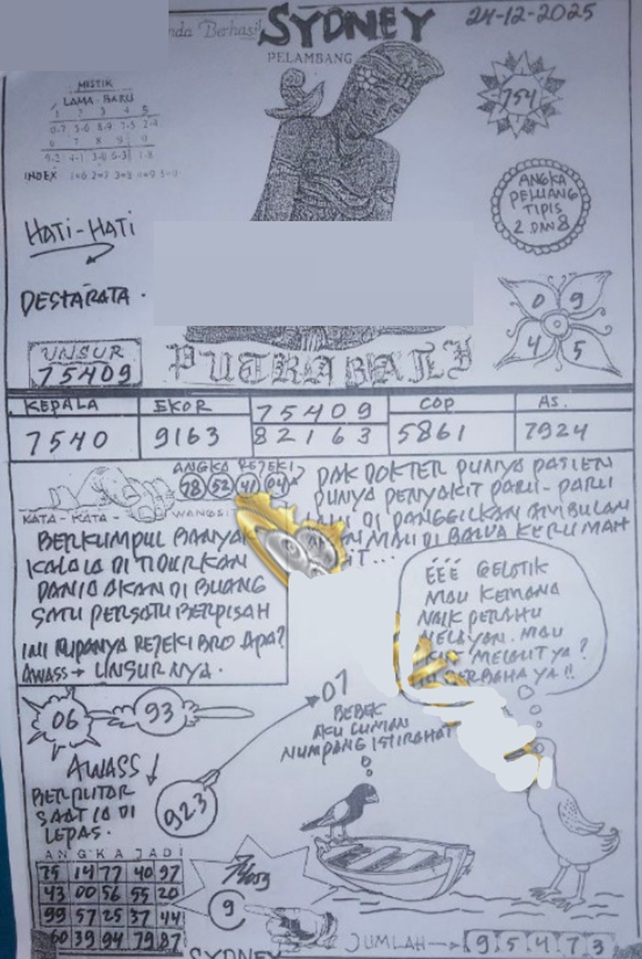 nda Berhasil
SYDNEY
24-12-2025
PELAMBANG
MISTIK
LAMA - BARU
1 2 3 4 5
0-7 5-6 8-9 7-5 2-4
6 7 8 9 0
9-2 4-1 3-0 6-3 1-8
INDEX 1=6 2=7 3=8 4=9 5=0
754
ANGKA
PELUANG
TIPIS
2 DAN 8
HATI-HATI
DESTARATA.
0 9
4 5
UNSUR
75409
PUTRA BALI
KEPALA EKOR 75409 COP AS.
7540 9163 82163 5861 7924
ANGKA REJEKI
78 52 41 04
KATA-KATA- WANGSIT
BERKUMPUL BANYAK
KALO IA DI TIDURKAN
DAN IA AKAN DI BUANG
SATU PERSATU BERPISAH
INI RUPANYA REJEKI BRO APA?
AWASS → UNSURNYA.
PAK DOKTER PUNYA PASIEN
PUNYA PENYAKIT PARU-PARU
DI PANGGILKAN AMBULAN
MAU DI BAWA KERUMAH
IT...
ÉÉÉ GELATIK
MAU KEMANA
NAIK PERAHU
NELAYAN. MAU
MELAUT YA?
BERBAHAYA!!
07
BEBEK
AKU CUMAN
NUMPANG ISTIRAHAT
06
93
AWASS ↓
BERPUTAR
SAAT IA DI
LEPAS.
923
ANGKA JADI
75 14 77 40 97
43 00 56 55 20
99 57 25 37 44
60 39 94 79 87
9
SYDNEY
JUMLAH → 95473